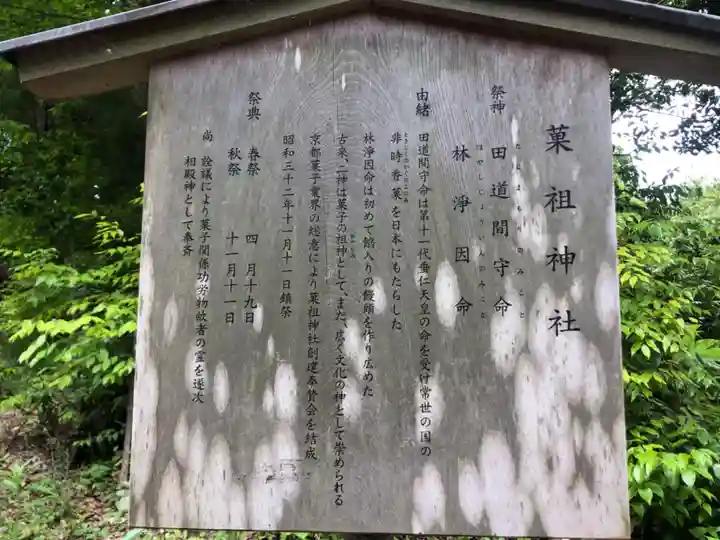 菓祖神社
祭神 田道間守命
たぢまもりのみこと
林淨因命
はやしじょういんのみこと
由緒 田道間守命は第十一代垂仁天皇の命を受け常世の国の
非時香菓を日本にもたらした
林淨因命は初めて餡入りの饅頭を作り広めた
古来、二神は菓子の祖神として、また、広く文化の神として崇められる
京都菓子業界の総意により菓祖神社創建奉賛会を結成
昭和三十二年十一月十一日鎮祭
祭典 春祭 四月十九日
秋祭 十一月十一日
尚 詮議により菓子関係功労物故者の霊を逐次
相殿神として奉斉